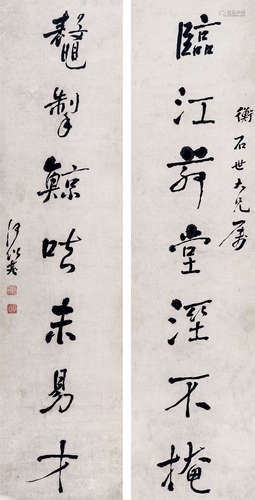 衡石世大兄屬
臨江堂不掩
鼇掣鯨呿未易才
何紹基